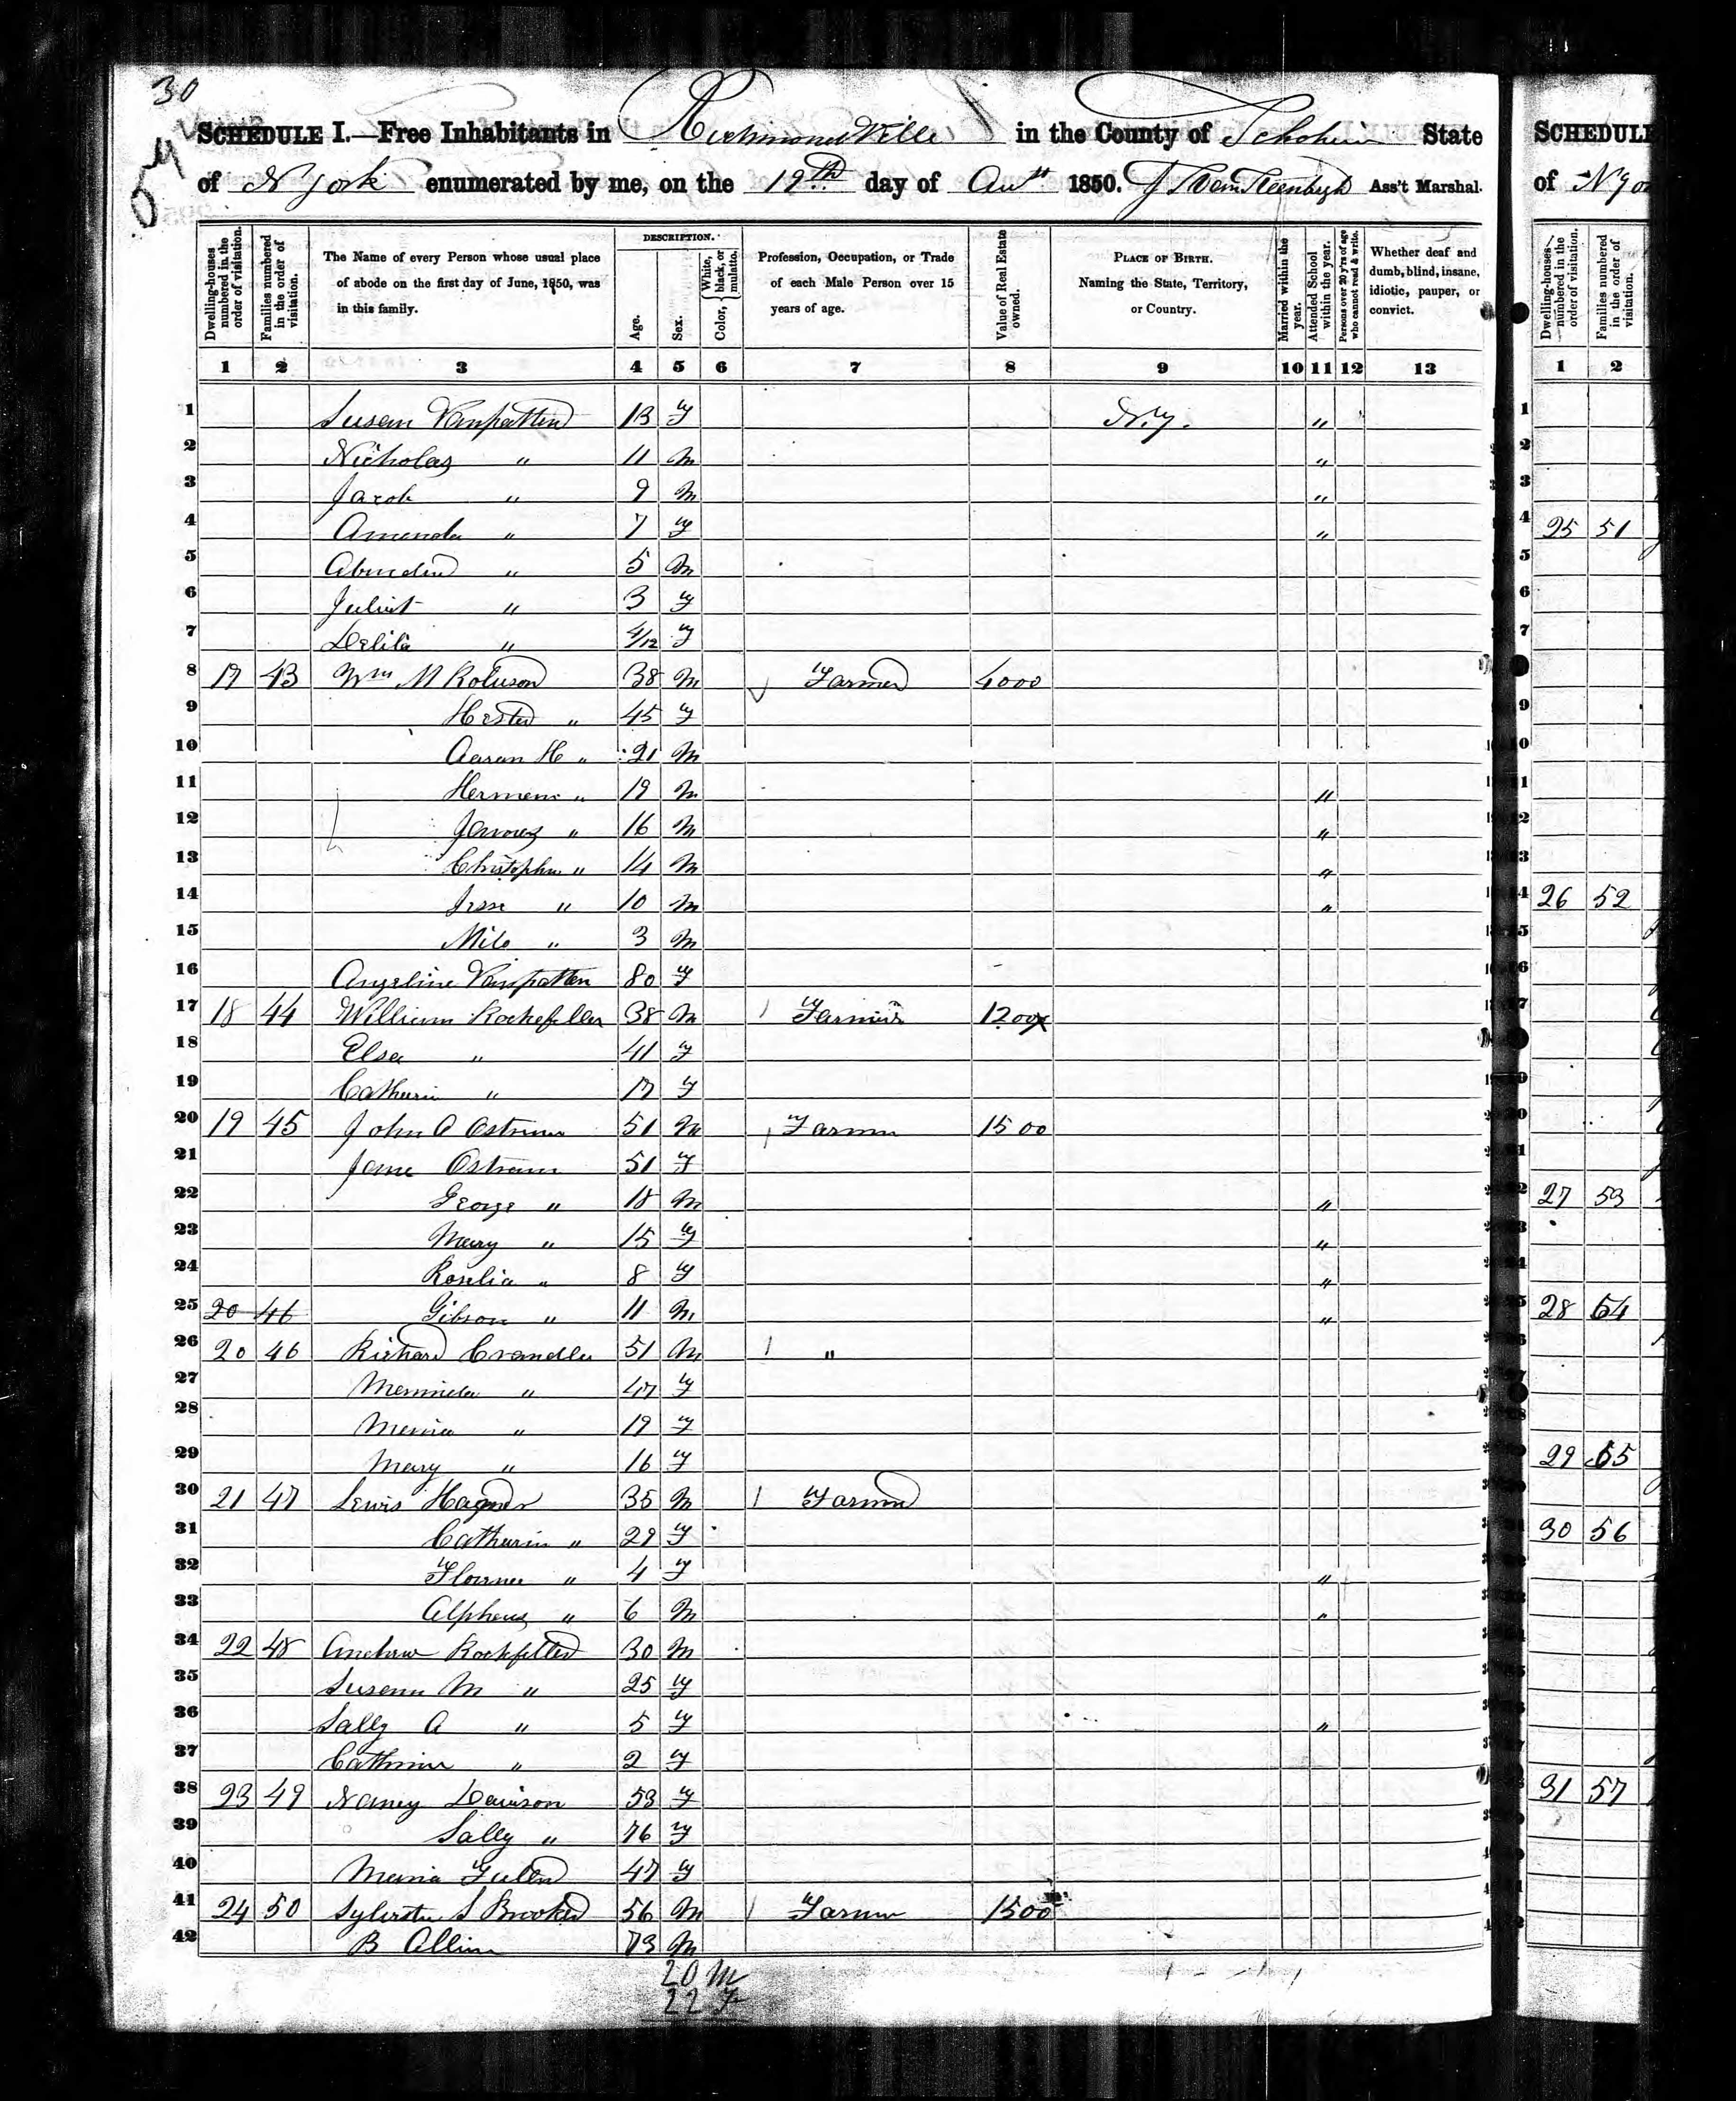 30
SCHEDULE I.—Free Inhabitants in Richmondville in the County of Schoharie State
of N York enumerated by me, on the 19th day of Aust 1850. Ass't Marshal.
Dwelling-houses numbered in the order of visitation.
Families numbered in the order of visitation.
The Name of every Person whose usual place of abode on the first day of June, 1850, was in this family.
DESCRIPTION.
Age.
Sex.
Color, { White, black, or mulatto.
Profession, Occupation, or Trade of each Male Person over 15 years of age.
Value of Real Estate owned.
PLACE OF BIRTH. Naming the State, Territory, or Country.
Married within the year.
Attended School within the year.
Persons over 20 y'rs of age who cannot read & write.
Whether deaf and dumb, blind, insane, idiotic, pauper, or convict.
1 2 3 4 5 6 7 8 9 10 11 12 13
1 Susan Vanpatten 13 F N.Y. "
2 Nicholas " 11 M "
3 Jacob " 9 M "
4 Amanda " 7 F "
5 " 5 M
6 Juliet " 3 F
7 Delila " 4/12 F
8 17 43 Wm M Roluson 38 M Farmer 4000
9 Hester " 45 F
10 Aaron H " 21 M
11 Herman " 19 M "
12 James " 16 M "
13 Christopher " 14 M "
14 Jesse " 10 M "
15 Milo " 3 M
16 Angeline Vanpatten 80 F
17 18 44 William Rockefeller 38 M Farmer 1200
18 Elsa " 41 F
19 Catharin " 17 F
20 19 45 John A Ostrum 51 M Farmer 1500
21 Jane Ostram 51 F
22 George " 18 M "
23 Mary " 15 F "
24 Roselia " 8 F "
25 20 46 Gibson " 11 M "
26 20 46 Richard Crandller 51 M "
27 " 47 F
28 " 19 F
29 Mary " 16 F
30 21 47 Lewis Hagner 35 M Farmer
31 Catharin " 29 F
32 " 4 F "
33 Alpheus " 6 M "
34 22 48 Andrew Rockfeller 30 M
35 Susann M " 25 F
36 Sally A " 5 F "
37 Cathrine " 2 F
38 23 49 Nancy Davison 53 F
39 Sally " 76 F
40 Maria 47 F
41 24 50 Sylvester S Brooker 56 M Farmer 1500
42 B Allin 73 M
20 M
22 F
SCHEDULE
of N Yo
Dwelling-houses numbered in the order of visitation.
Families numbered in the order of visitation.
1 2
1
2
3
4 25 51
5
6
7
9
26 52
27 53
28 54
29 55
30 56
31 57